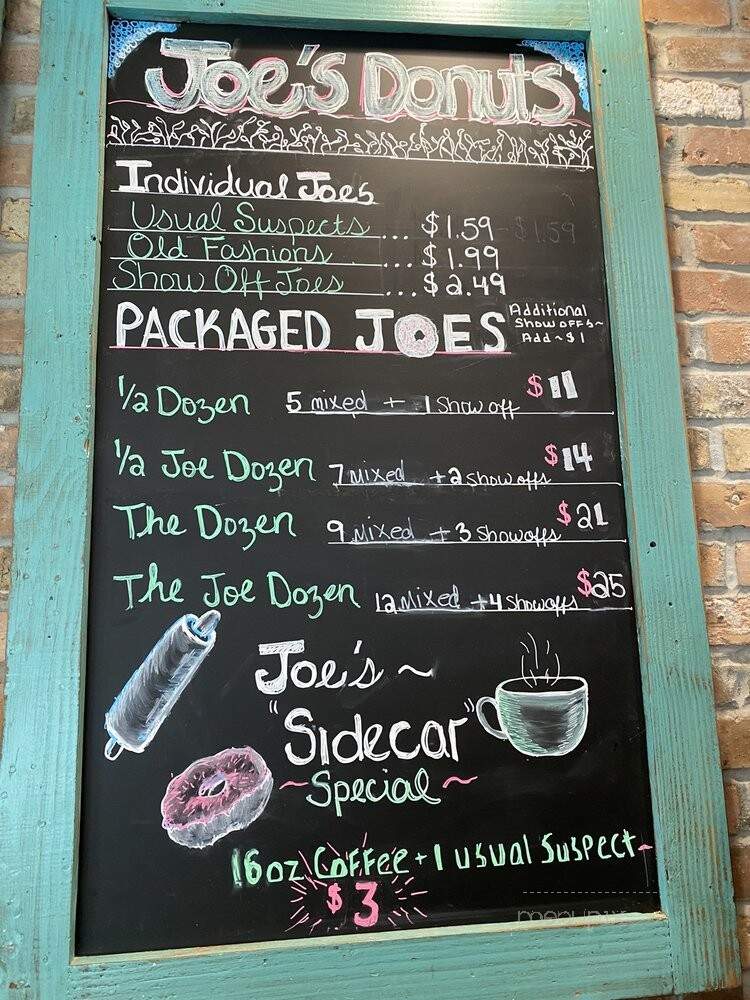 Joe's Donuts
Individual Joes
Usual Suspects ... $1.59 - $1.59
Old Fashions ... $1.99
Show Off Joes ... $2.49
PACKAGED JOES
Additional
Show offs~
Add ~ $1
1/2 Dozen 5 mixed + 1 Show off $11
1/2 Joe Dozen 7 Mixed + 2 Show offs $14
The Dozen 9 Mixed + 3 Showoffs $21
The Joe Dozen 12 Mixed + 4 Showoffs $25
Joe's ~
"Sidecar"
~ Special ~
16oz Coffee + 1 usual Suspect -
$3